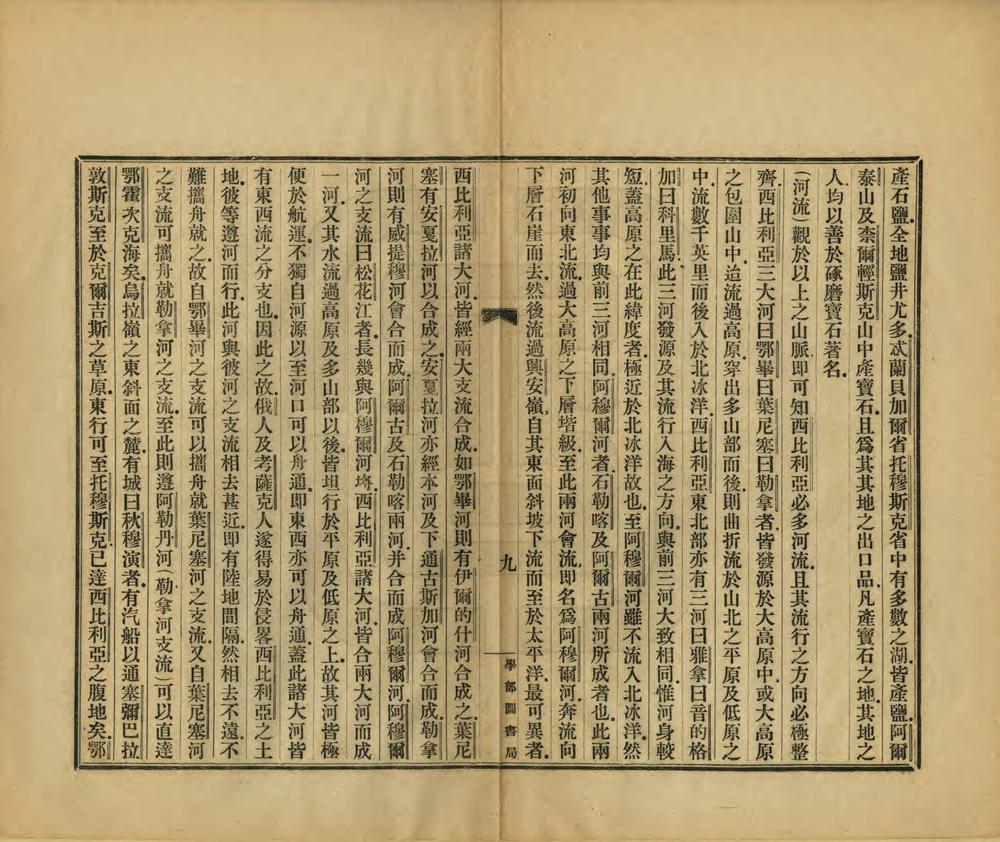 產石鹽全地鹽井尤多忒蘭貝加爾省托穆斯克省中有多數之湖皆產鹽阿爾
泰山及柰爾輕斯克山中產寶石且爲其地之出口品凡產寶石之地其地之
人均以善於琢磨寶石著名
(河流)觀於以上之山脈即可知西比利亞必多河流且其流行之方向必極整
齊西比利亞三大河曰鄂畢曰葉尼塞曰勒拿者皆發源於大高原中或大高原
之包圍山中迨流過高原穿出多山部而後則曲折流於山北之平原及低原之
中流數千英里而後入於北冰洋西比利亞東北部亦有三河曰雅拿曰音的格
加曰科里馬此三河發源及其流行入海之方向與前三河大致相同惟河身較
短蓋高原之在此緯度者極近於北冰洋故也至阿穆爾河雖不流入北冰洋然
其他事事均與前三河相同阿穆爾河者石勒喀及阿爾古兩河所成者也此兩
河初向東北流過大高原之下層堦級至此兩河會流即名爲阿穆爾河奔流向
下層石崖而去然後流過興安嶺自其東面斜坡下流而至於太平洋最可異者
九
學部圖書局
西比利亞諸大河皆經兩大支流合成如鄂畢河則有伊爾的什河合成之葉尼
塞有安戛拉河以合成之安戛拉河亦經本河及下通古斯加河會合而成勒拿
河則有威提穆河會合而成阿爾古及石勒喀兩河并合而成阿穆爾河阿穆爾
河之支流曰松花江者長幾與阿穆爾河埒西比利亞諸大河皆合兩大河而成
一河又其水流過高原及多山部以後皆坦行於平原及低原之上故其河皆極
便於航運不獨自河源以至河口可以舟通即東西亦可以舟通蓋此諸大河皆
有東西流之分支也因此之故俄人及考薩克人遂得易於侵畧西比利亞之土
地彼等遵河而行此河與彼河之支流相去甚近即有陸地間隔然相去不遠不
難攜舟就之故自鄂畢河之支流可以攜舟就葉尼塞河之支流又自葉尼塞河
之支流可攜舟就勒拿河之支流至此則遵阿勒丹河(勒拿河支流)可以直達
鄂霍次克海矣烏拉嶺之東斜面之麓有城曰秋穆演者有汽船以通塞彌巴拉
敦斯克至於克爾吉斯之草原東行可至托穆斯克已達西比利亞之腹地矣鄂